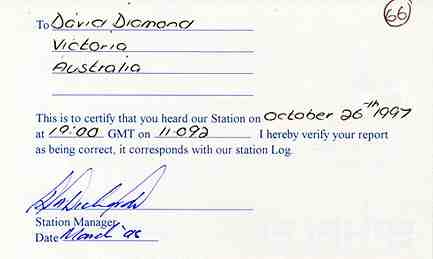 66
To David Diamond
Victoria
Australia
This is to certify that you heard our Station on October 26th 1997
at 19:00 GMT on 11.092 I hereby verify your report
as being correct, it corresponds with our station Log.
Station Manager
Date March '98